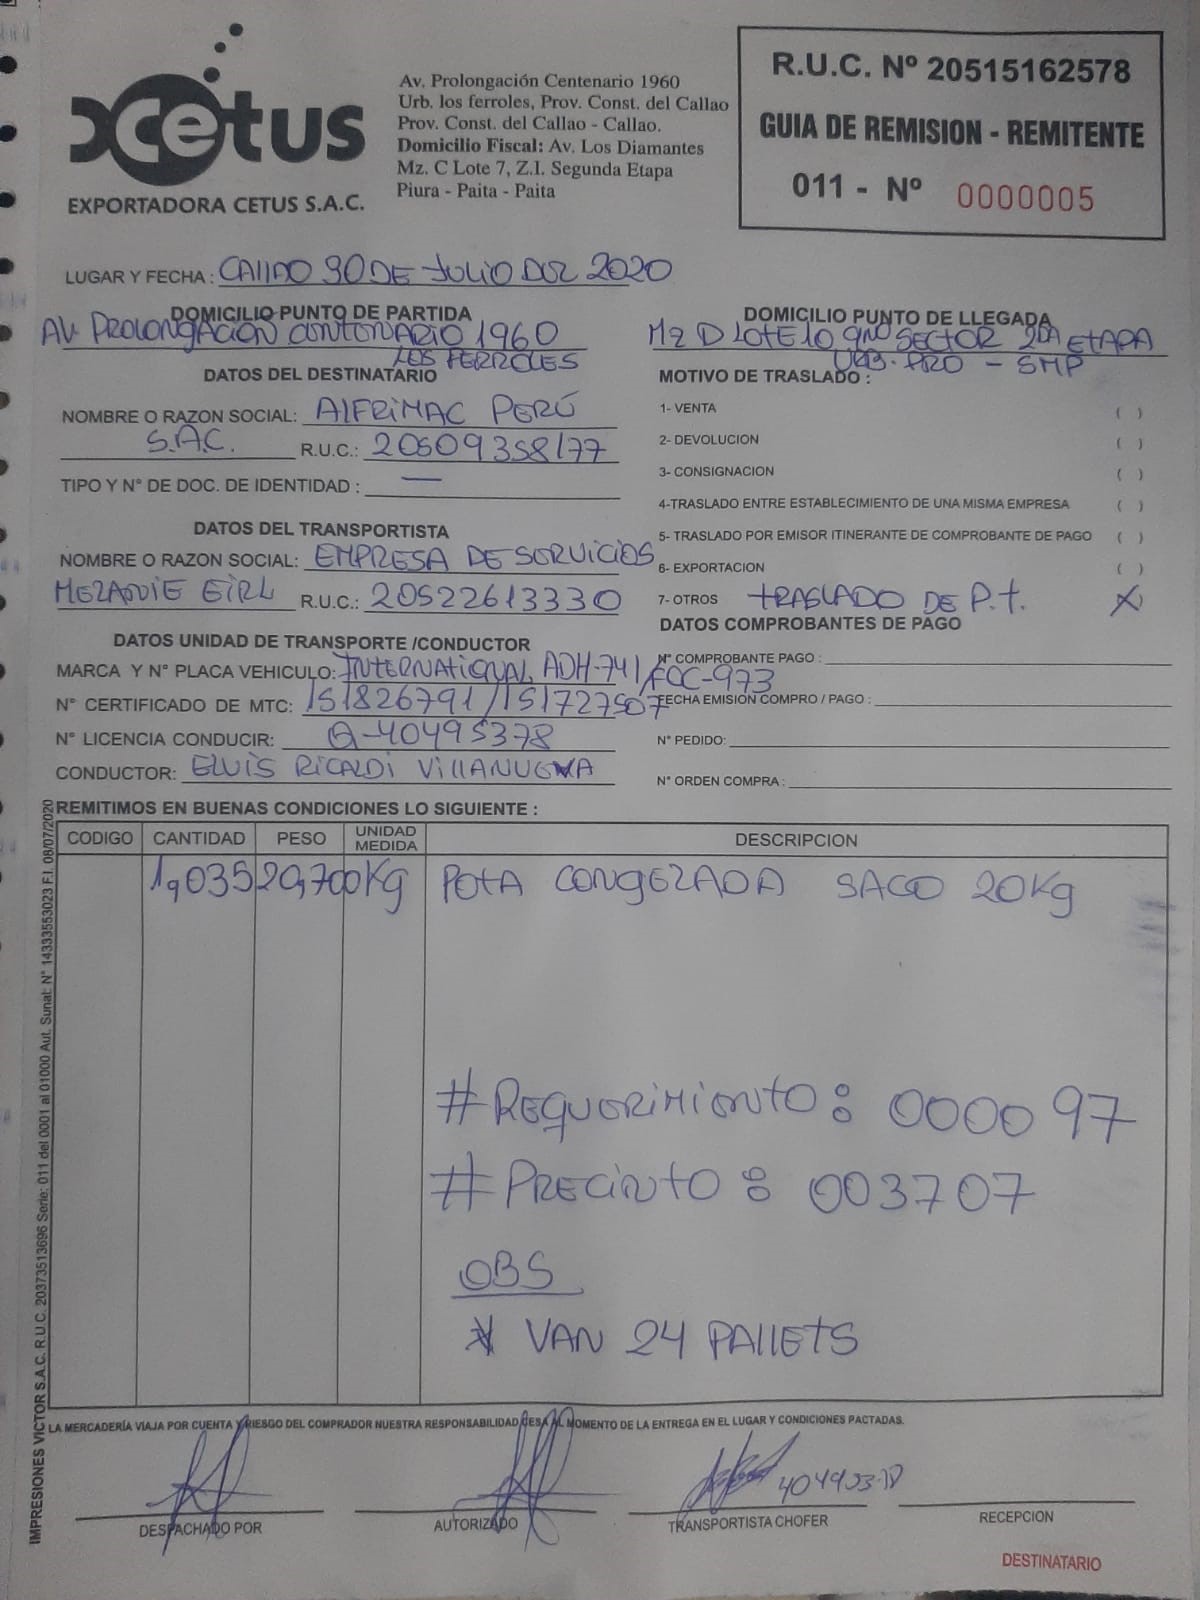 Cetus
EXPORTADORA CETUS S.A.C.
Av. Prolongación Centenario 1960
Urb. los ferroles, Prov. Const. del Callao
Prov. Const. del Callao - Callao.
Domicilio Fiscal: Av. Los Diamantes
Mz. C Lote 7, Z.I. Segunda Etapa
Piura - Paita - Paita
R.U.C. Nº 20515162578
GUIA DE REMISION - REMITENTE
011 - Nº 0000005
LUGAR Y FECHA : CAllAO 30 DE JULIO DEL 2020
DOMICILIO PUNTO DE PARTIDA
AV. PROLONGACION CENTENARIO 1960
LOS FERROLES
DOMICILIO PUNTO DE LLEGADA
MZ D LOTE 10 9NO SECTOR 2DA ETAPA
URB. PRO - SMP
DATOS DEL DESTINATARIO
NOMBRE O RAZON SOCIAL: AlFRIMAC PERÚ
S.A.C. R.U.C.: 20509358177
TIPO Y Nº DE DOC. DE IDENTIDAD : —
MOTIVO DE TRASLADO :
1- VENTA ( )
2- DEVOLUCION ( )
3- CONSIGNACION ( )
4-TRASLADO ENTRE ESTABLECIMIENTO DE UNA MISMA EMPRESA ( )
5- TRASLADO POR EMISOR ITINERANTE DE COMPROBANTE DE PAGO ( )
6- EXPORTACION ( )
7- OTROS TRASLADO DE P.T. X
DATOS DEL TRANSPORTISTA
NOMBRE O RAZON SOCIAL: EMPRESA DE SERVICIOS
EIRL R.U.C.: 20522613330
DATOS COMPROBANTES DE PAGO
Nº COMPROBANTE PAGO :
FECHA EMISION COMPRO / PAGO :
Nº PEDIDO:
Nº ORDEN COMPRA :
DATOS UNIDAD DE TRANSPORTE /CONDUCTOR
MARCA Y Nº PLACA VEHICULO: INTERNATIONAL ADH-741/FOC-973
Nº CERTIFICADO DE MTC: 151826791/151727507
Nº LICENCIA CONDUCIR: Q-40495378
CONDUCTOR: ELVIS RICALDI VILLANUEVA
REMITIMOS EN BUENAS CONDICIONES LO SIGUIENTE :
CODIGO CANTIDAD PESO UNIDAD MEDIDA DESCRIPCION
1,035 20,700 Kg POTA CONGELADA SACO 20Kg
#REQUERIMIENTO: 0000 97
#PRECINTO: 003707
OBS
* VAN 24 PAllETS
LA MERCADERÍA VIAJA POR CUENTA Y RIESGO DEL COMPRADOR NUESTRA RESPONSABILIDAD CESA AL MOMENTO DE LA ENTREGA EN EL LUGAR Y CONDICIONES PACTADAS.
DESPACHADO POR
AUTORIZADO
TRANSPORTISTA CHOFER
RECEPCION
DESTINATARIO
IMPRESIONES VICTOR S.A.C. R.U.C. 20373513696 Serie: 011 del 0001 al 01000 Aut. Sunat: Nº 14333553023 F.I. 08/07/2020